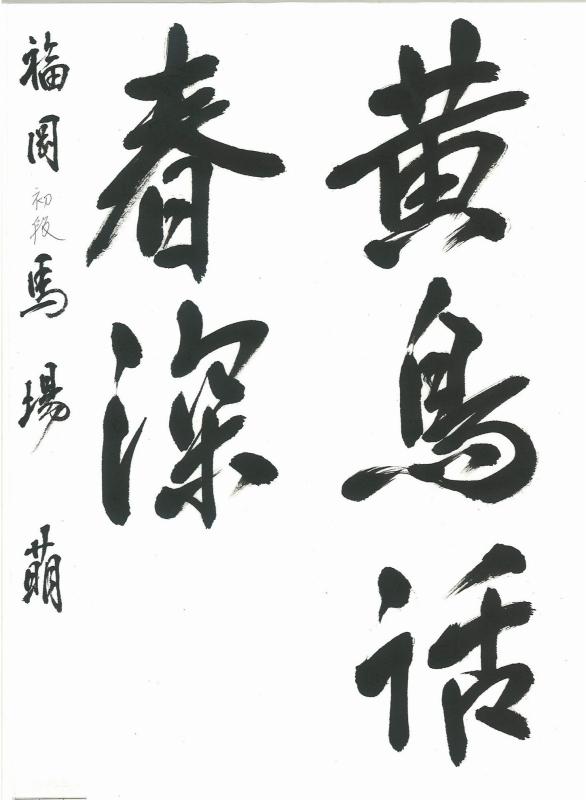 黄鳥話
春深
福岡 初段 馬場 萠